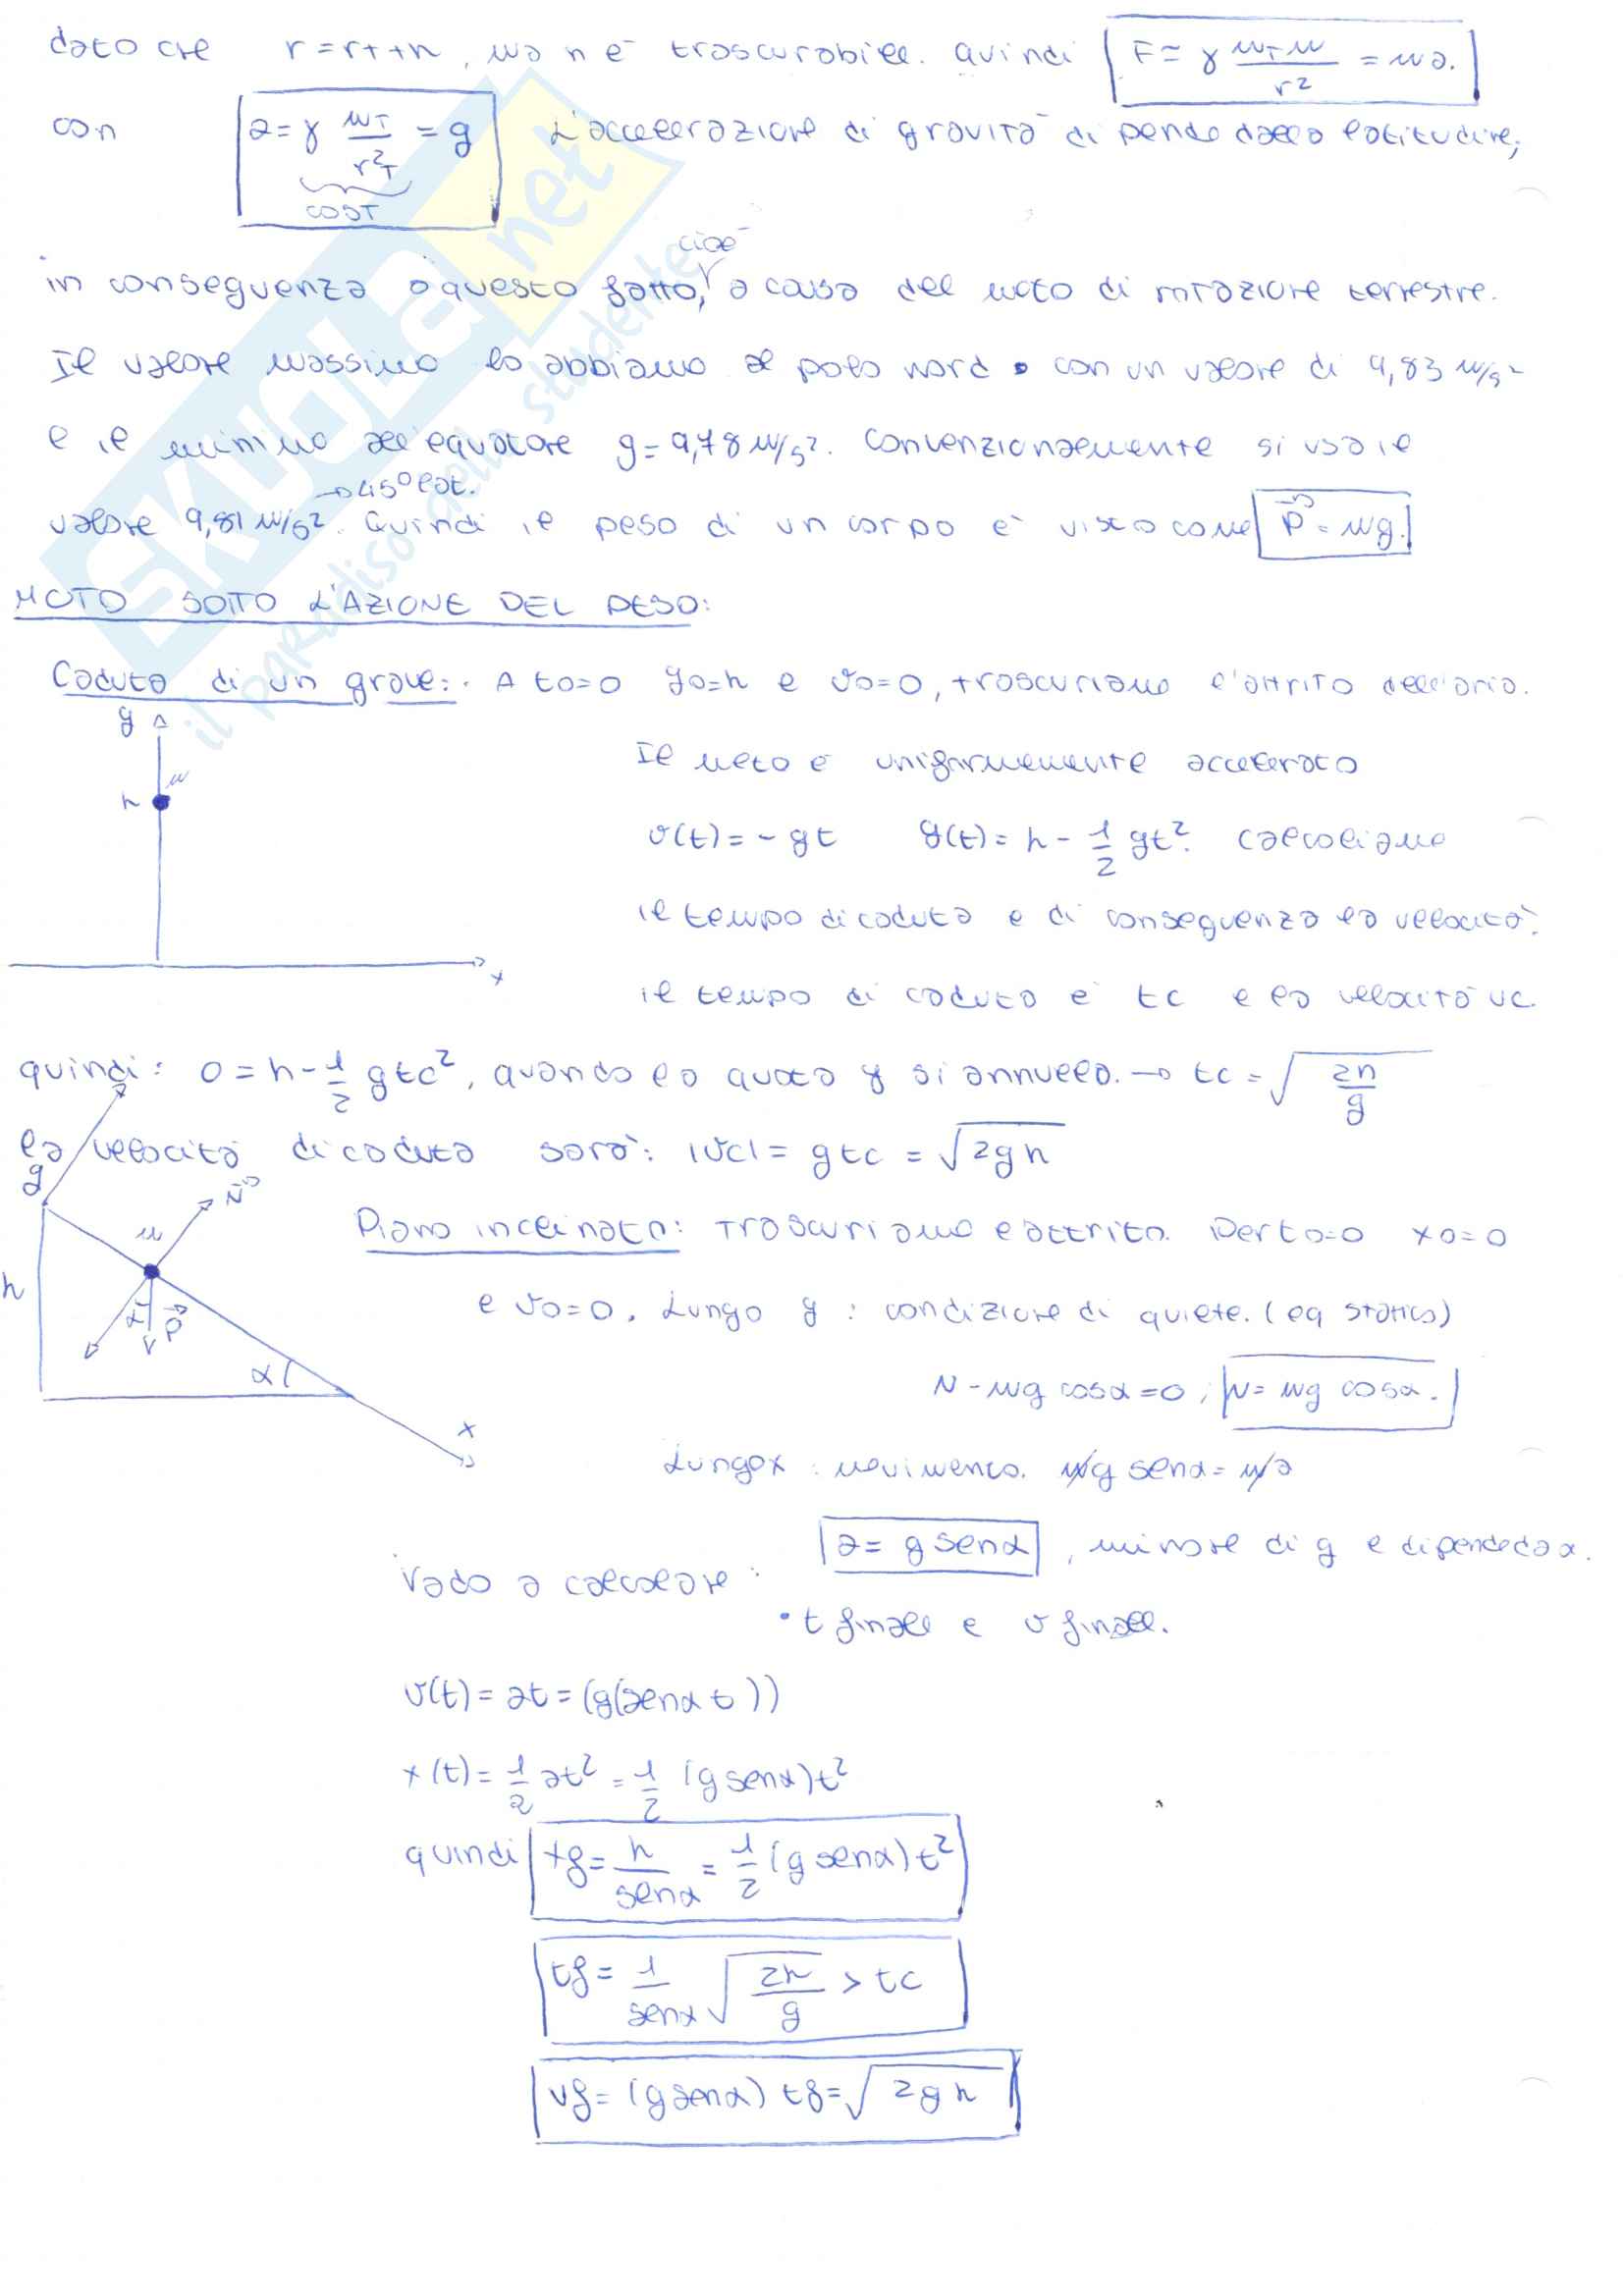 dato che r = rT + h, ma h è trascurabile. Quindi F ≃ γ mT m / r² = ma.
con a = γ mT / rT² = g L'accelerazione di gravità dipende dalla latitudine,
cost
cioè
in conseguenza a questo fatto, a causa del moto di rotazione terrestre.
Il valore massimo lo abbiamo al polo nord con un valore di 9,83 m/s²
e il minimo all'equatore g = 9,78 m/s². Convenzionalmente si usa il
→ 45° lat.
valore 9,81 m/s². Quindi il peso di un corpo è visto come P = mg.
MOTO SOTTO L'AZIONE DEL PESO:
Caduta di un grave: A t0=0 y0=h e v0=0, trascuriamo l'attrito dell'aria.
y
Il moto è uniformemente accelerato
m
h
v(t) = -gt y(t) = h - 1/2 gt². Calcoliamo
il tempo di caduta e di conseguenza la velocità.
x
il tempo di caduta è tc e la velocità vc.
quindi: 0 = h - 1/2 gtc², quando la quota y si annulla. → tc = √(2h/g)
la velocità di caduta sarà: |vc| = gtc = √(2gh)
y
N
m
h
P
α
α
x
Piano inclinato: Trascuriamo l'attrito. Per t0=0 x0=0
e v0=0. Lungo y: condizione di quiete. (eq statica)
N - mg cosα = 0; N = mg cosα.
Lungo x: movimento. mg senα = ma
a = g senα, minore di g e dipende da α.
Vado a calcolare:
• t finale e v finale.
v(t) = at = (g(senα t))
x(t) = 1/2 at² = 1/2 (g senα)t²
quindi xf = h/senα = 1/2 (g senα) t²
tf = 1/senα √(2h/g) > tc
vf = (g senα) tf = √(2gh)
SKUOLA.net
il paradiso dello studente